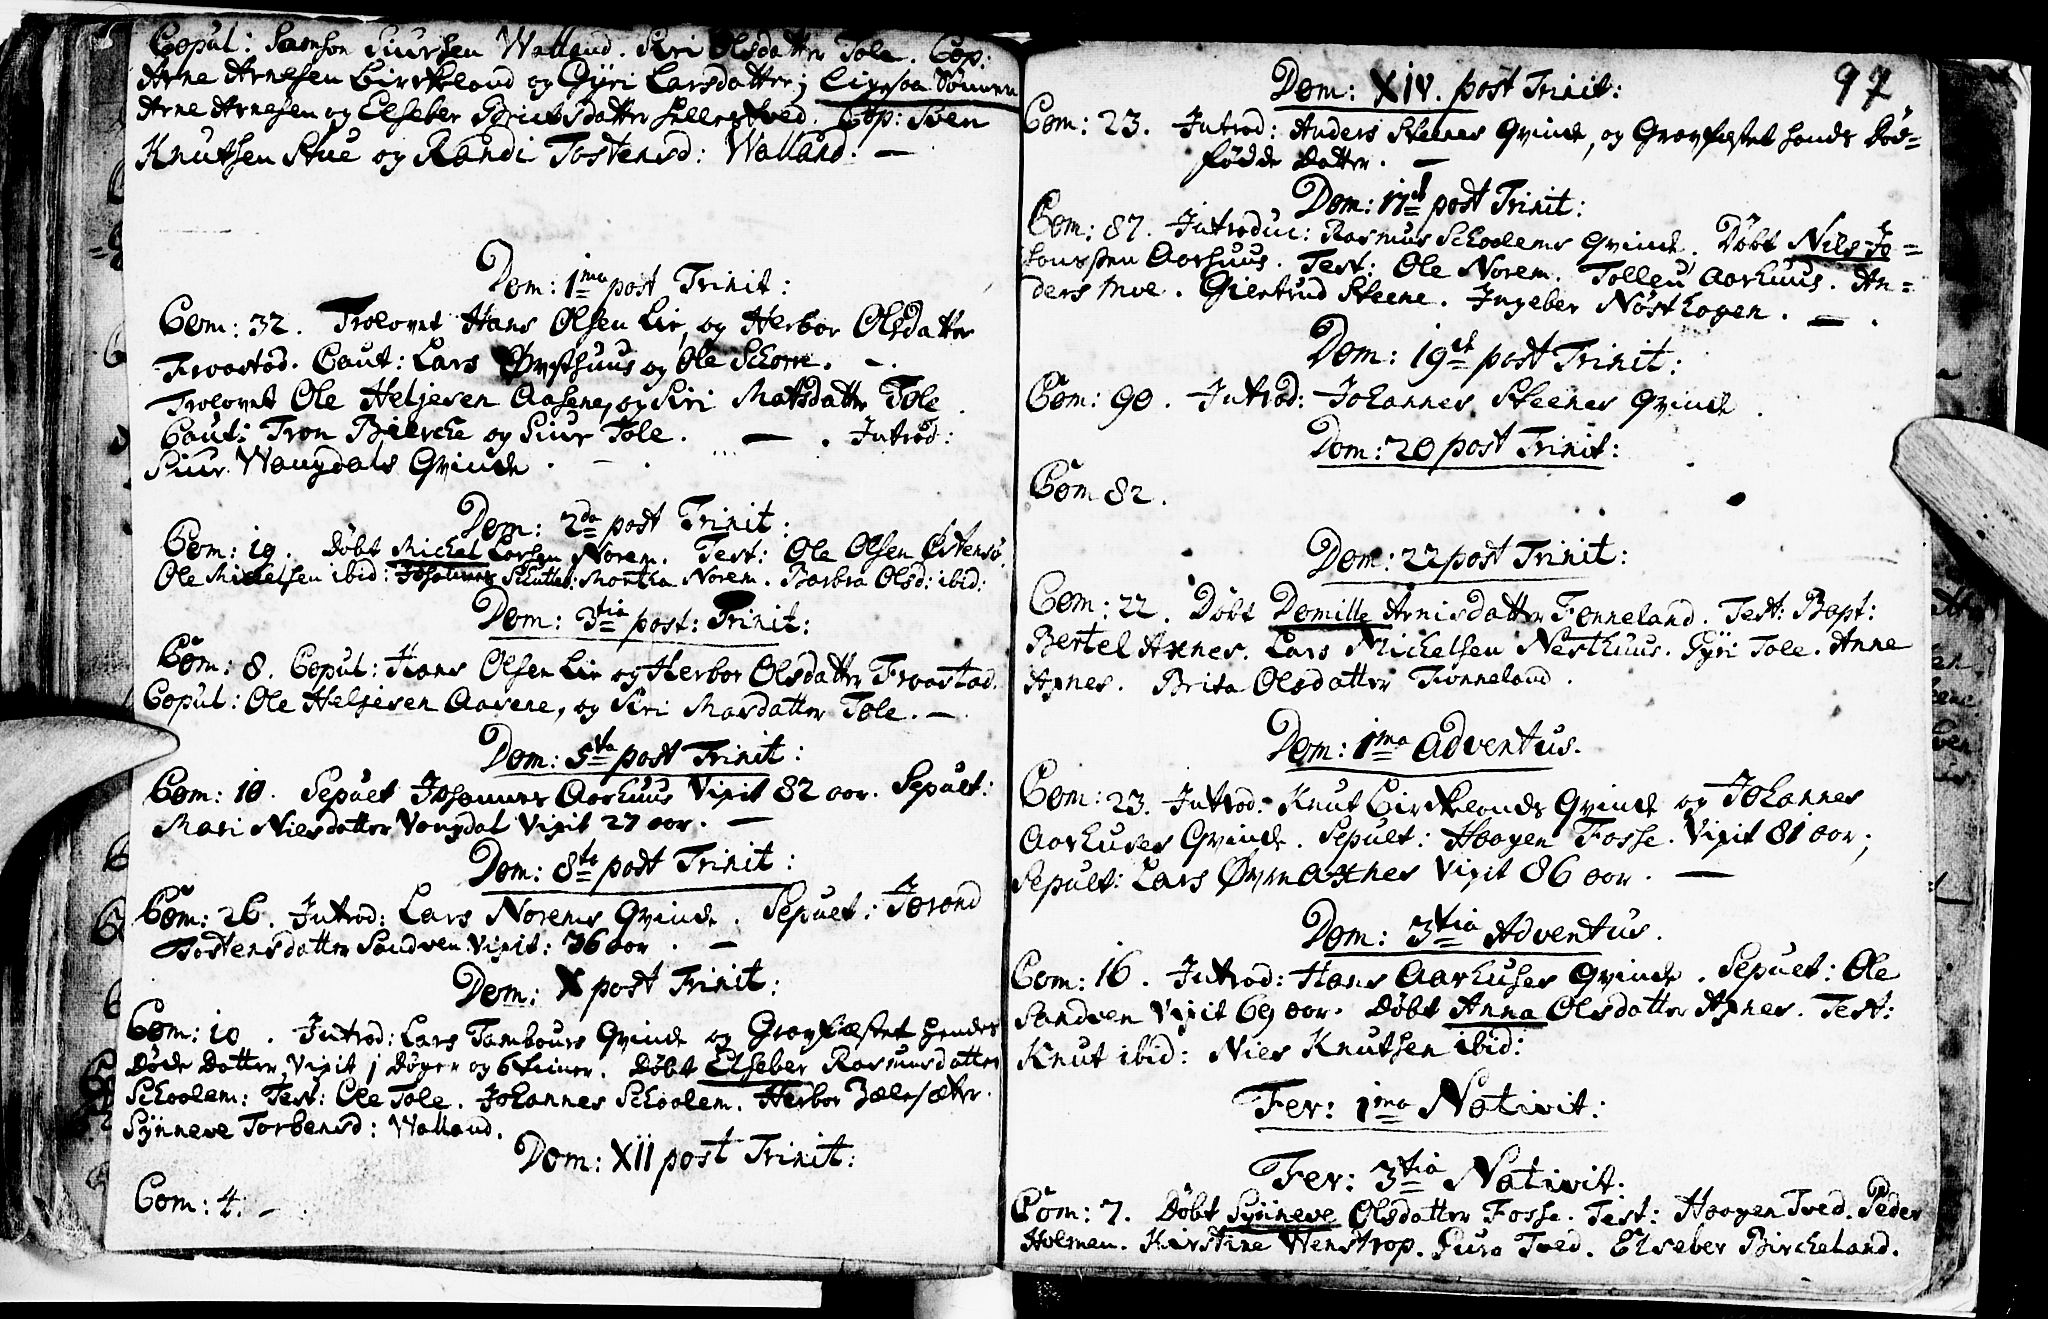 Copul: Samson Siursen Walland. Siri Olsdatter Tole. Cop:
Arne Arnesen Birkeland og Gyri Larsdatter; Ligesaa Sønnen
Arne Arnesen og Elseber Brictsdatter Lillestved. Cop: Sven
Knutsen Stue og Randi Tostensd: Walland. —
Dom: 1ma post Trinit:
Com: 32. Trolovet Hans Olsen Lie, og Herbor Olsdatter
Froastad. Caut: Lars Øvsthuus og Ole Skorre. —.
Trolovet Ole Heljesen Aasene, og Siri Matsdatter Tole.
Caut: Tron Bierche og Siur Tole. — . Introd:
Siur Wangdals Qvinde.
Dom: 2da post Trinit:
Com: 19. Døbt Michel Larsen Norem. Test: Ole Olsen Østensø.
Ole Mickelsen ibid: Johannes Martha Norem. Barbra Olsd: ibid:
Dom: 3tia post: Trinit:
Com: 8. Copul: Hans Olsen Lie og Herbor Olsdatter Froastad.
Copul: Ole Heljesen Aasene, og Siri Masdatter Tole. —.
Dom: 5ta post Trinit:
Com: 10. Sepult Johannes Aarhuus Vixit 82 aar. Sepult:
Mari Nielsdatter Vangdal Vixit 27 aar. —
Dom: 8ta post Trinit:
Com: 26. Introd: Lars Norems Qvinde. Sepult: Jorand
Tostensdatter Sandven Vixit: 36 aar. —
Dom: X post Trinit:
Com: 10. Introd: Lars Tambours Qvinde og Gravfæstet hendes
Døde Datter, Vixit 1 Døgn og 6 timer. Døbt Elseber Rasmusdatter
Schoolem: Test: Ole Tole. Johannes Schoolem. Herbor Jælesæter.
Synneve Torbensd: Walland.
Dom: XII post Trinit:
Com: 4. —
97
Dom: XIV. post Trinit:
Com: 23. Introd: Anders Steenes Qvinde, og Gravfæstet hands Død=
fødde Datter. —
Dom: 17de post Trinit:
Com: 87. Introduc: Rasmus Schoolems Qvinde. Døbt Nils Jo=
hanssen Aarhuus. Test: Ole Norem. Tolleu Aarhuus. An=
ders Moe. Giertrud Steene. Ingeber Nøsthagen. — .
Dom: 19de post Trinit:
Com: 90. Introd: Johannes Steenes Qvinde.
Dom: 20 post Trinit:
Com 82.
Dom: 22 post Trinit:
Com: 22. Døbt Domille Arnisdatter Fenneland. Test: Bapt:
Bertel Axnes. Lars Michelsen Nesthuus. Gyri Tole. Anne
Axnes. Brita Olsdatter Tvonneland.
Dom: 1ma Adventus.
Com: 23. Introd: Knut Birkelands Qvinde og Johannes
Aarhuses Qvinde. Sepult: Haagen Fosse. Vixit 81 aar;
Sepult: Lars Øvre Axnes Vixit 86 aar. —
Dom: 3tia Adventus.
Com: 16. Introd: Hans Aarhuses Qvinde. Sepult: Ole
Sandven Vixit 69 aar. Døbt Anna Olsdatter Axnes. Test:
Knut ibid: Niels Knutsen ibid:
Fer: 1ma Nativit:
Fer: 3tia Nativit:
Com: 7. Døbt Synneve Olsdatter Fosse. Test: Haagen Tved. Peder
Holmen. Kirstine Wenstrop. Guro Tved. Elseber Bircheland.